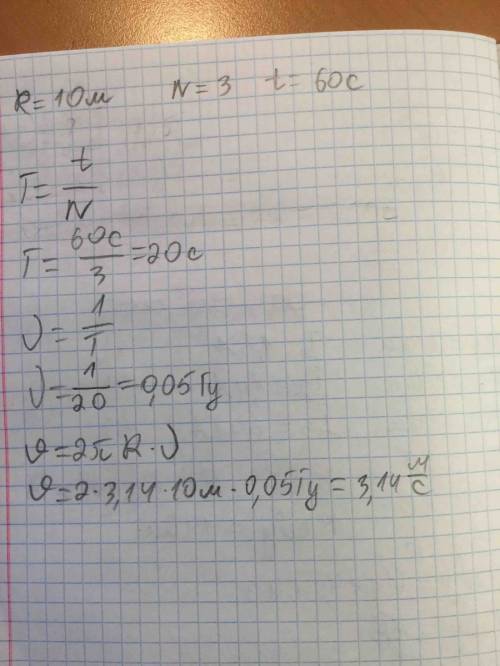 R = 10м N = 3 t = 60с
T = t/N
T = 60с/3 = 20с
ν = 1/T
ν = 1/20 = 0,05Гц
υ = 2π R · ν
υ = 2 · 3,14 · 10м · 0,05Гц = 3,14 м/с